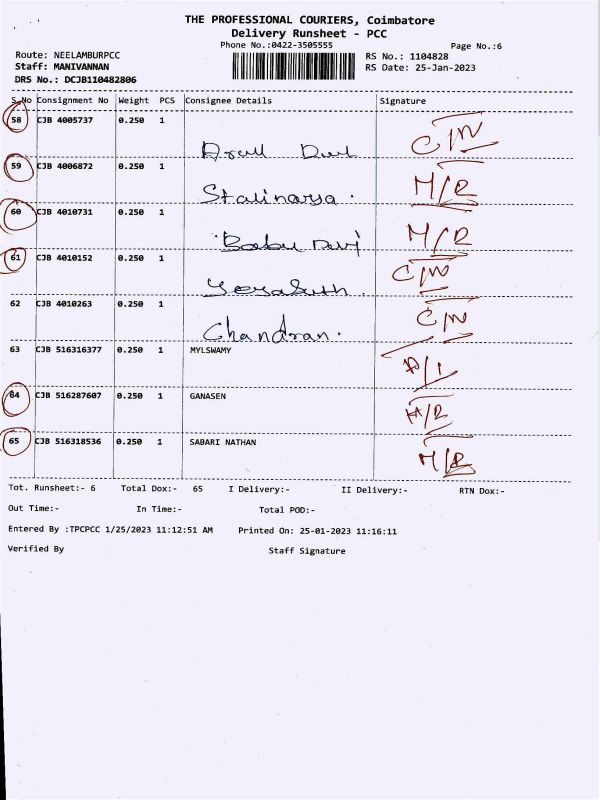 THE PROFESSIONAL COURIERS, Coimbatore
Delivery Runsheet - PCC
Phone No.:0422-3505555 Page No.:6
Route: NEELAMBURPCC RS No.: 1104828
Staff: MANIVANNAN RS Date: 25-Jan-2023
DRS No.: DCJB110482806
S.No Consignment No Weight PCS Consignee Details Signature
58 CJB 4005737 0.250 1 C/N
59 CJB 4006872 0.250 1 Stalinarya. M/R
60 CJB 4010731 0.250 1 Babu Devi M/R
61 CJB 4010152 0.250 1 C/N
62 CJB 4010263 0.250 1 Chandran. C/N
63 CJB 516316377 0.250 1 MYLSWAMY
64 CJB 516287607 0.250 1 GANASEN M/R
65 CJB 516318536 0.250 1 SABARI NATHAN M/R
Tot. Runsheet:- 6 Total Dox:- 65 I Delivery:- II Delivery:- RTN Dox:-
Out Time:- In Time:- Total POD:-
Entered By :TPCPCC 1/25/2023 11:12:51 AM Printed On: 25-01-2023 11:16:11
Verified By Staff Signature